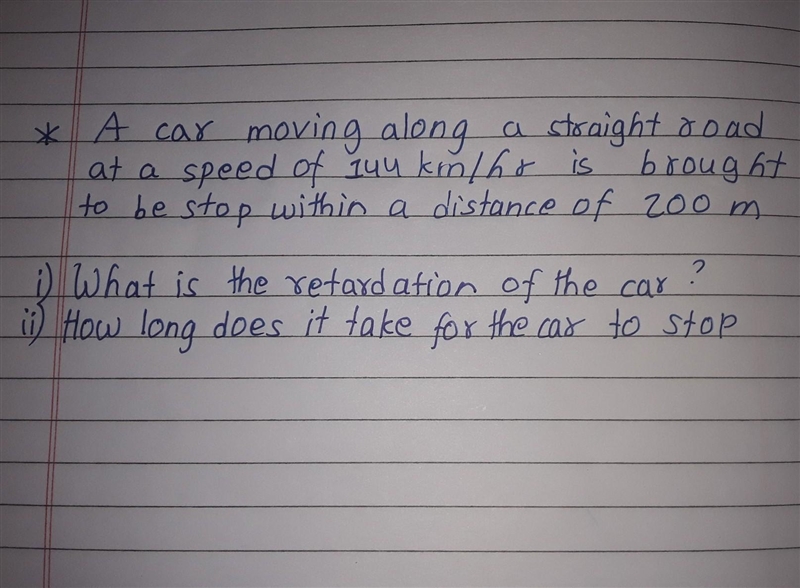 * A car moving along a straight road
at a speed of 144 km/hr is brought
to be stop within a distance of 200 m
i) What is the retardation of the car ?
ii) How long does it take for the car to stop